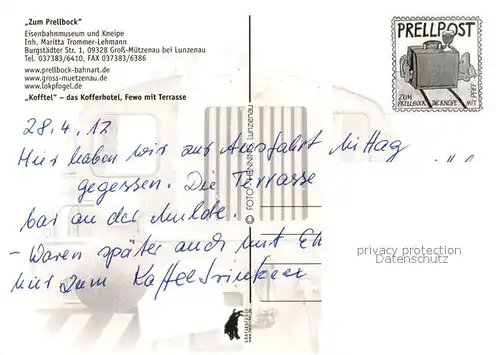 „Zum Prellbock“
Eisenbahnmuseum und Kneipe
Inh. Maritta Trommer-Lehmann
Burgstädter Str. 1, 09328 Groß-Mützenau bei Lunzenau
Tel. 037383/6410, FAX 037383/6386
www.prellbock-bahnart.de
www.gross-muetzenau.de
www.lokpfogel.de
„Kofftel“ – das Kofferhotel, Fewo mit Terrasse
PRELLPOST
ZUM PRELLBOCK DIE KNEIPE MIT PFIFF
28.4.12
Hier haben wir zur Ausfahrt Mittag
gegessen. Die Terrasse
war an der Mulde.
- Waren später auch mit
hier zum Kaffeetrinken
© FOTO HENNING
privacy protection
Datenschutz